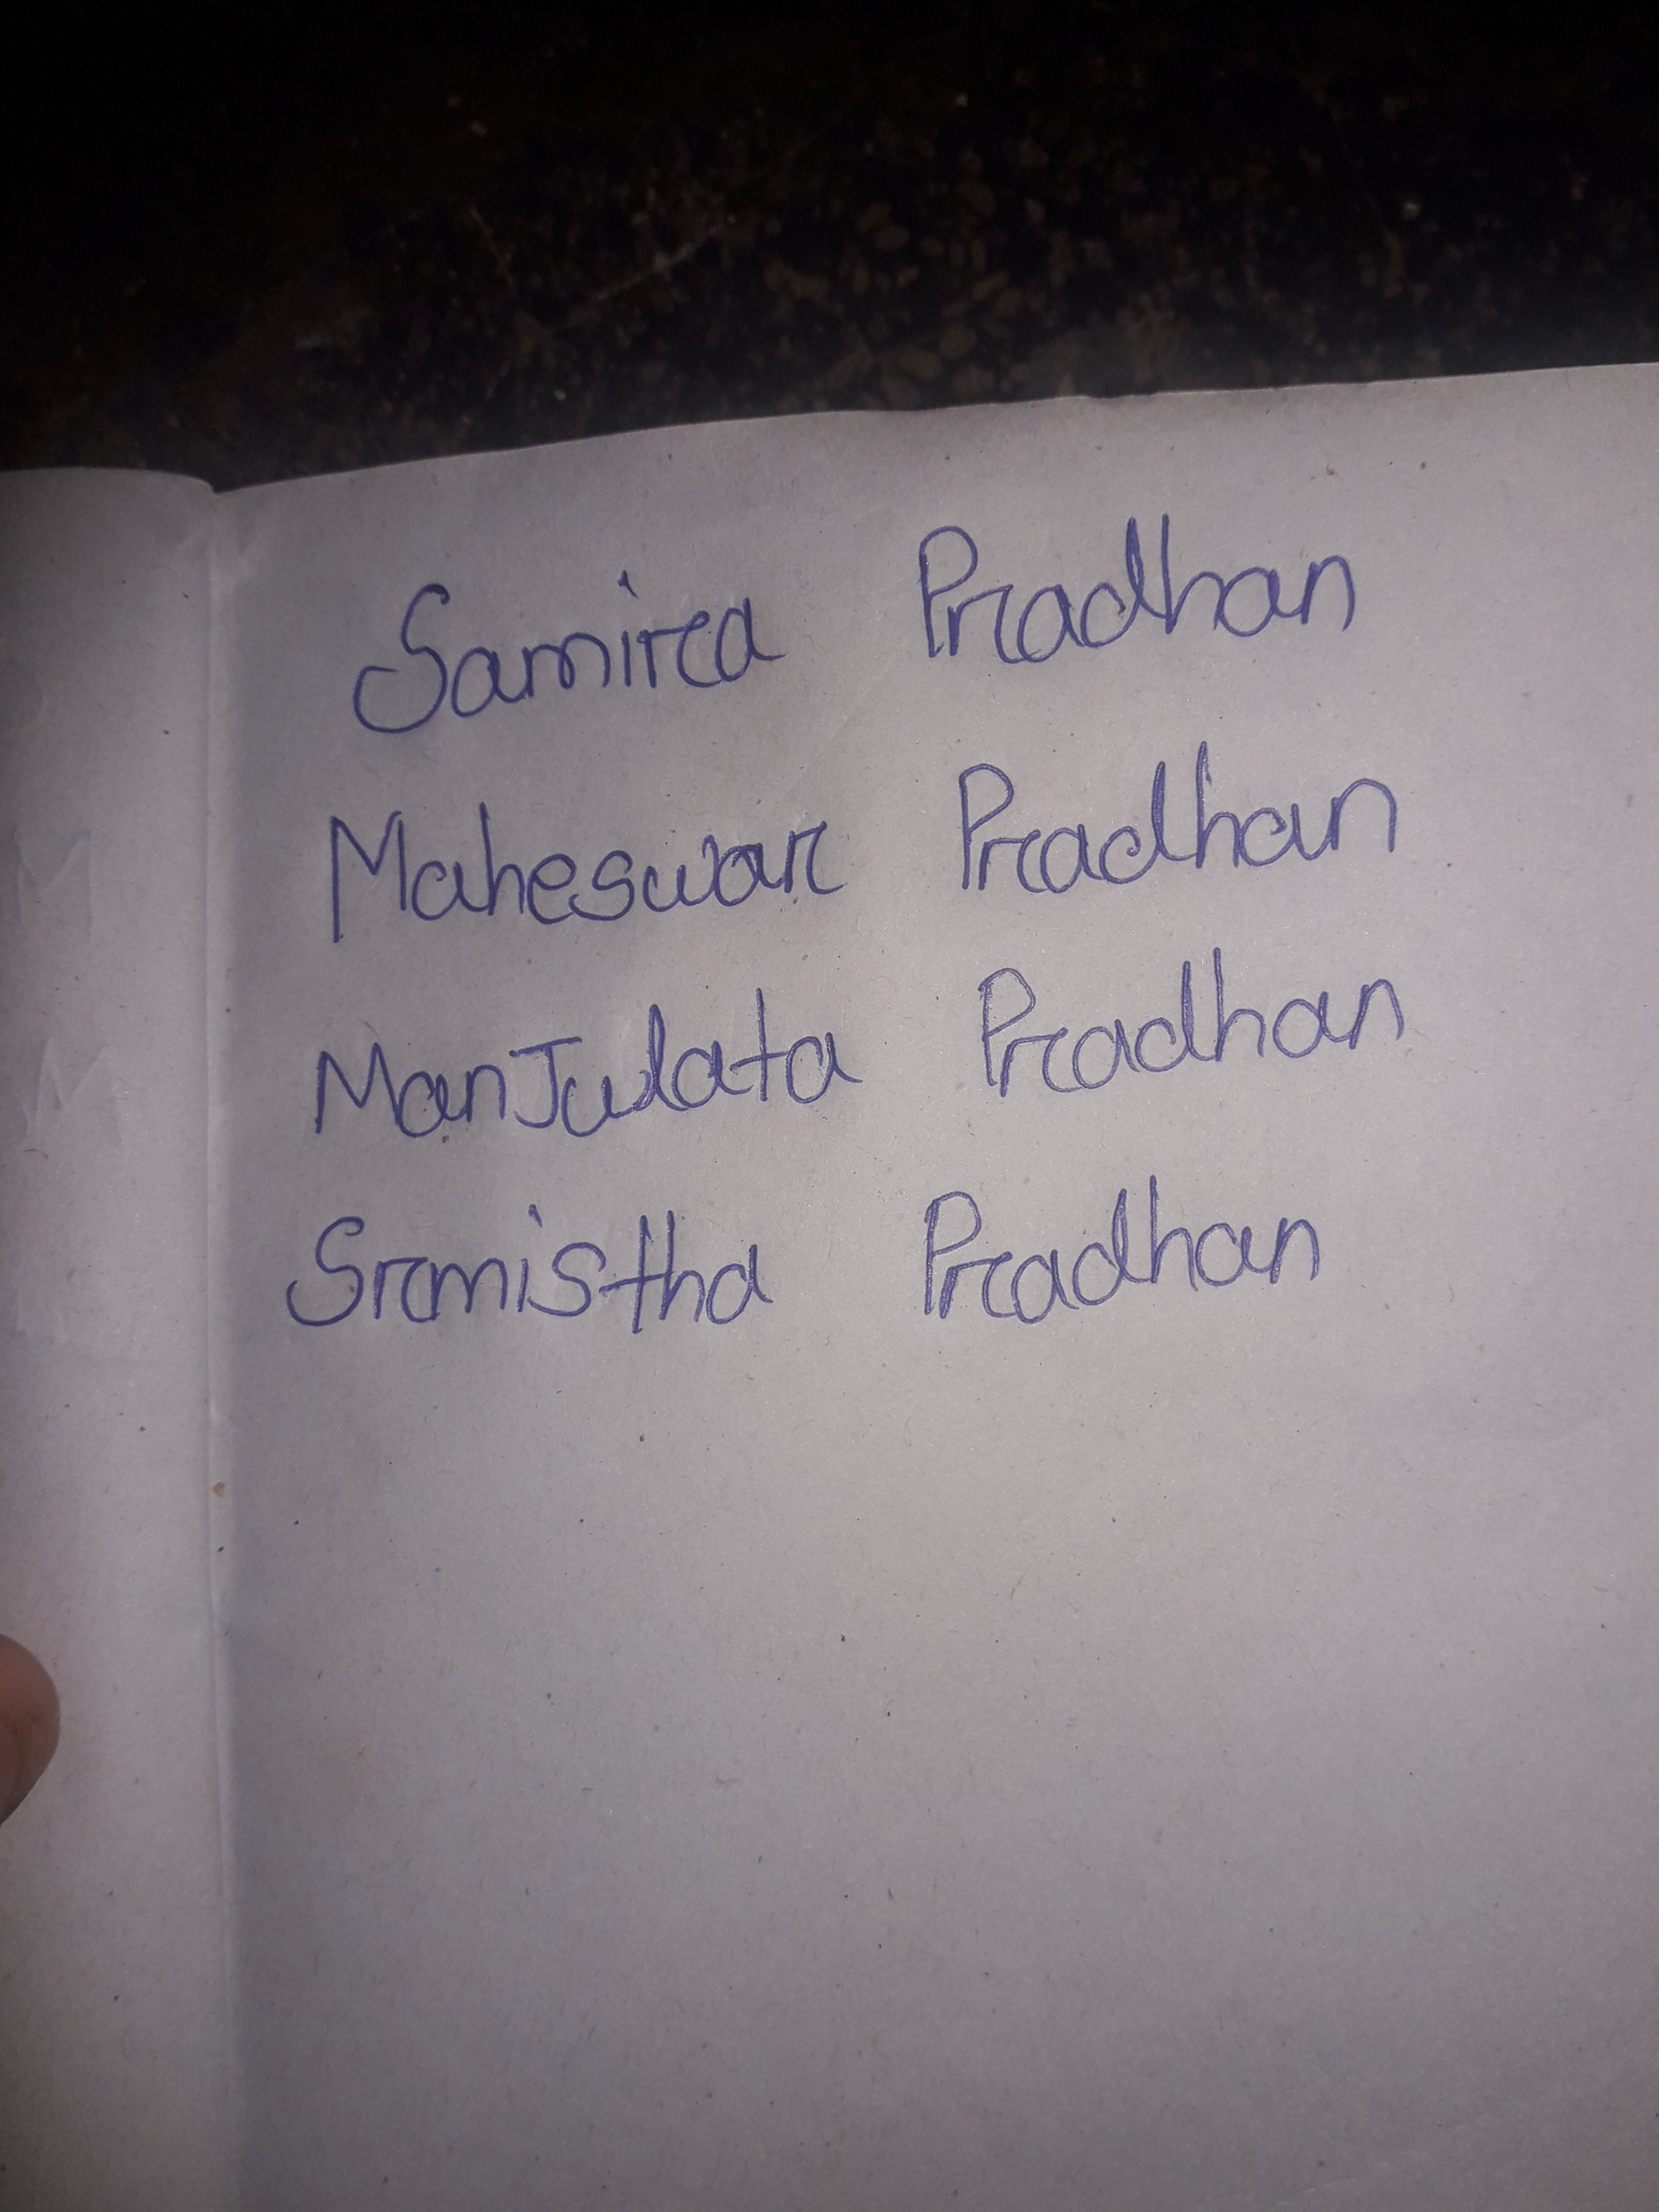 Samira Pradhan
Maheswar Pradhan
ManJulata Pradhan
Srmistha Pradhan